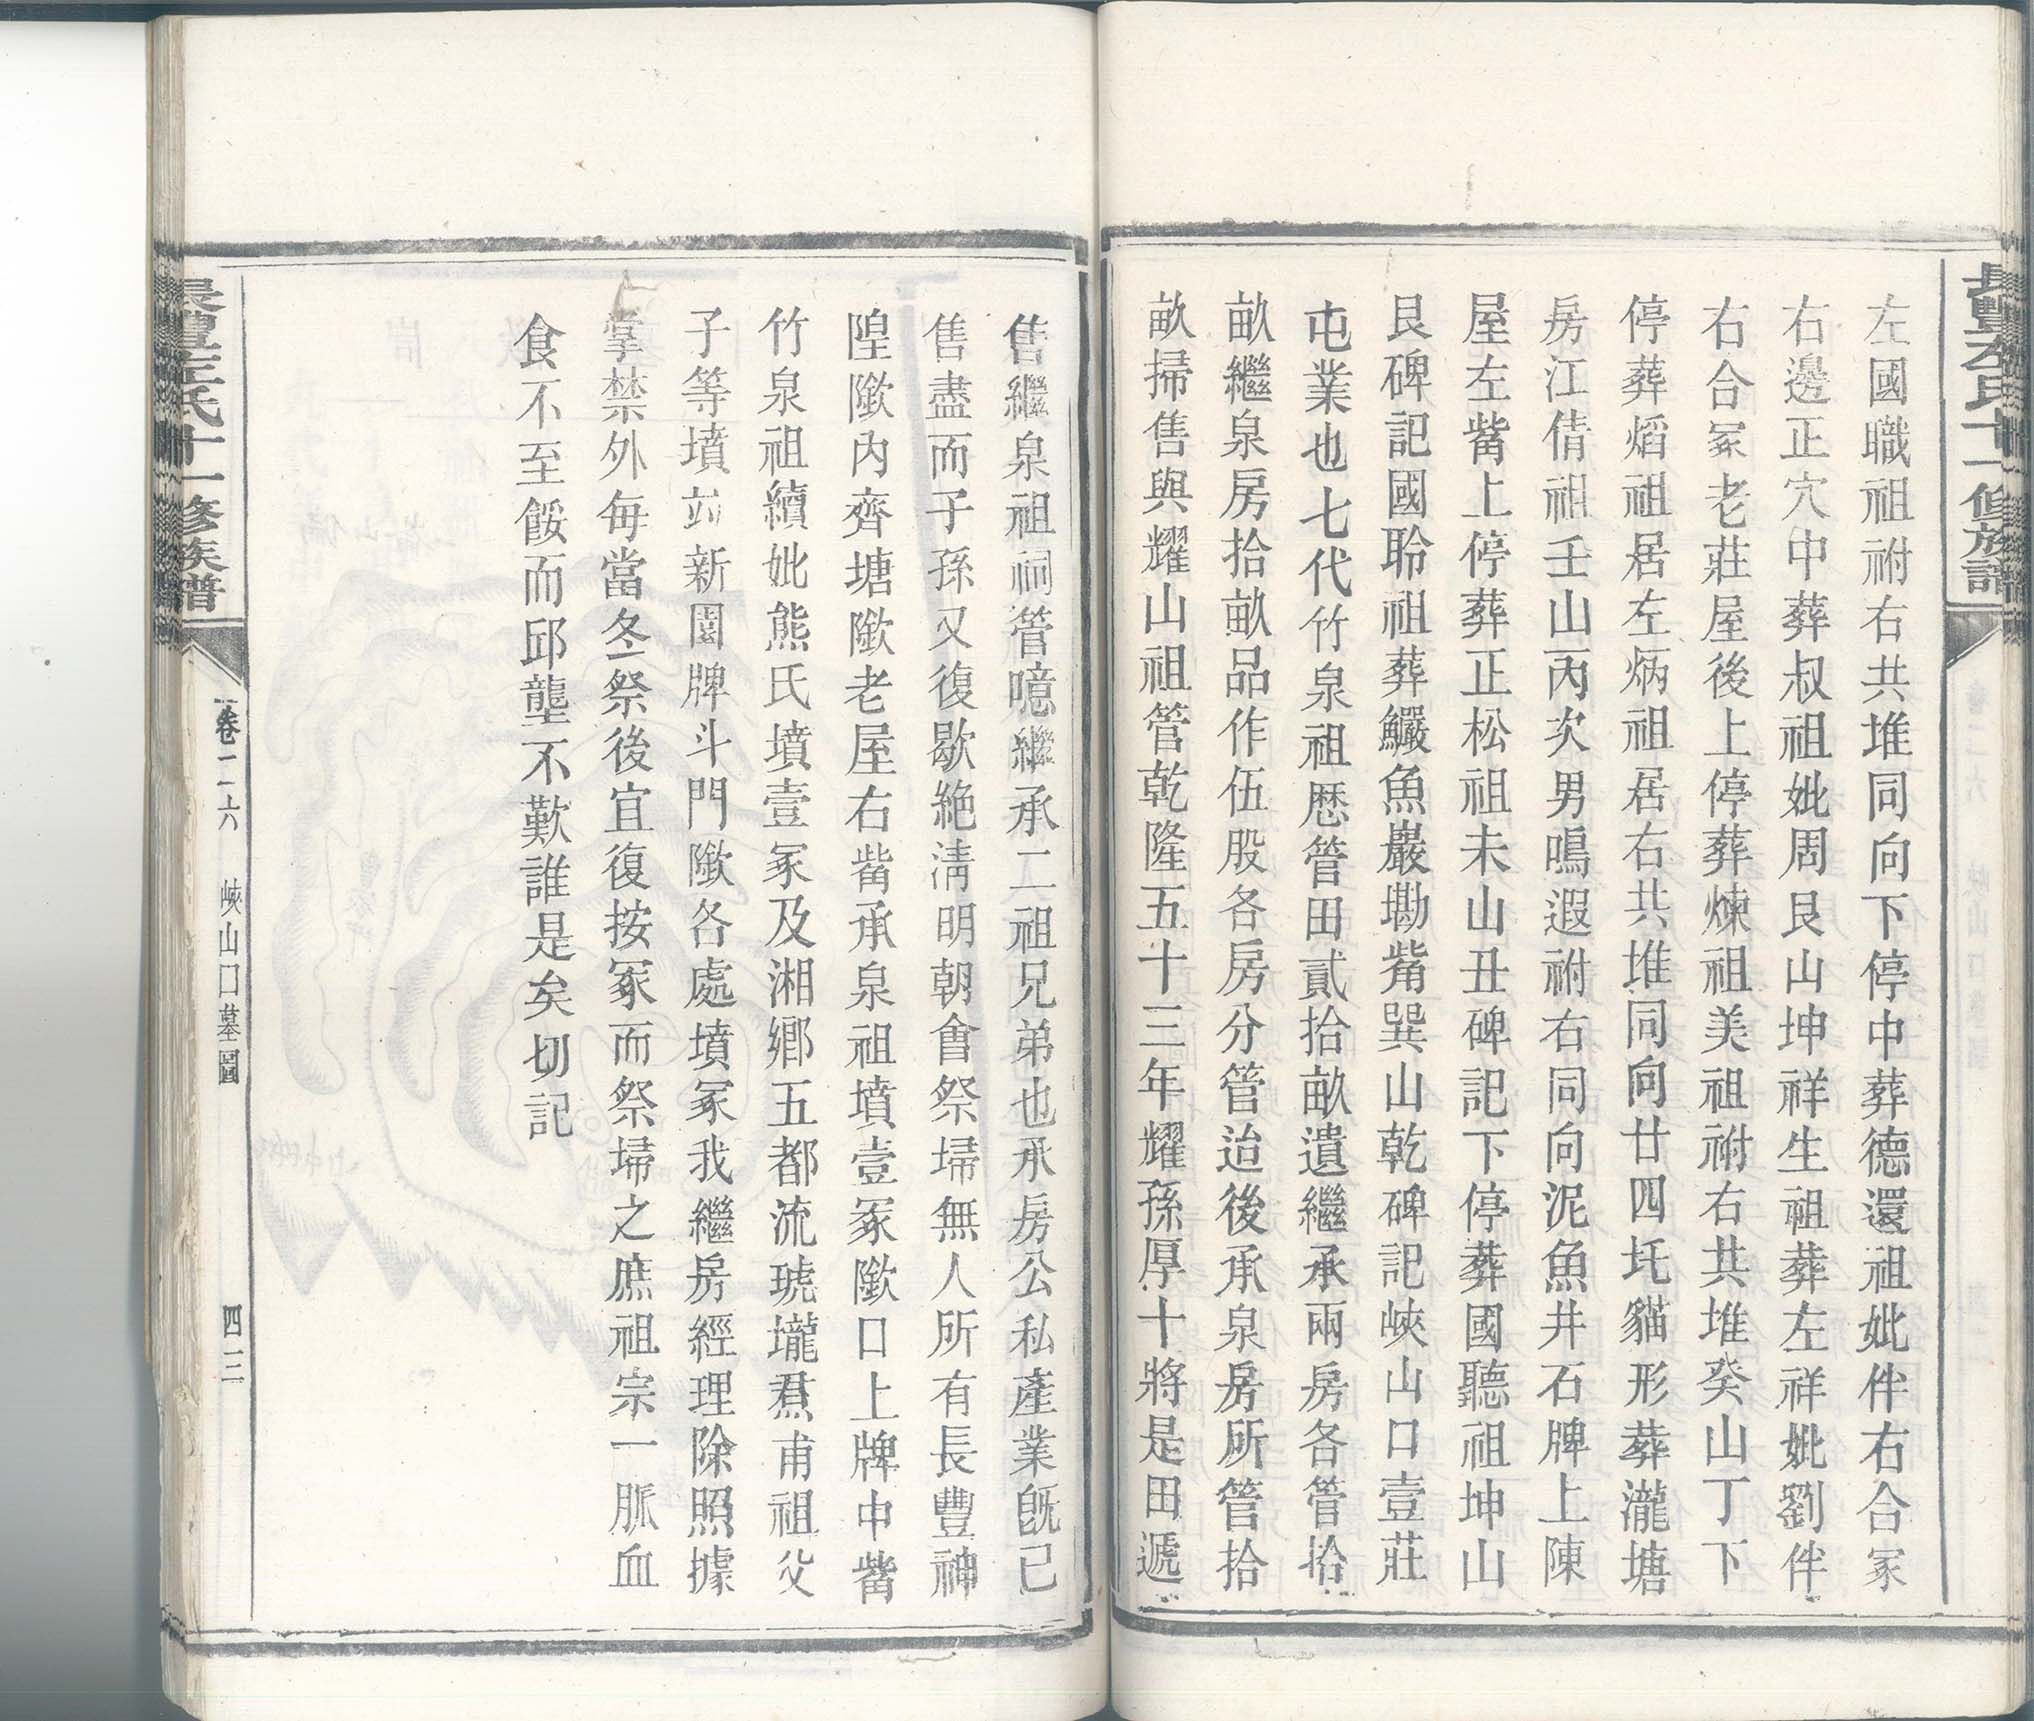 長豐左氏十一修族譜
左國職祖祔右共堆同向下停中葬德還祖妣伴右合冢
右邊正穴中葬叔祖妣周艮山坤祥生祖葬左祥妣劉伴
右合冢老莊屋後上停葬煉祖美祖祔右共堆癸山丁下
停葬熖祖居左炳祖居右共堆同向廿四圫貓形葬瀧塘
房江倩祖壬山丙次男鳴遐祔右同向泥魚井石牌上陳
屋左觜上停葬正松祖未山丑碑記下停葬國聽祖坤山
艮碑記國聆祖葬鱺魚巖墈觜巽山乾碑記峽山口壹莊
屯業也七代竹泉祖歷管田貳拾畝遺繼承兩房各管拾
畝繼泉房拾畝品作伍股各房分管迨後承泉房所管拾
畝掃售與耀山祖管乾隆五十三年耀孫厚十將是田遞
售繼泉祖祠管噫繼承二祖兄弟也承房公私產業旣已
售盡而子孫又復歇絶淸明朝會祭埽無人所有長豐神
隍隞內齊塘隞老屋右觜承泉祖墳壹冢隞口上牌中觜
竹泉祖續妣熊氏墳壹冢及湘鄉五都流琥壠焄甫祖父
子等墳竝新園牌斗門隞各處墳冢我繼房經理除照據
掌禁外每當冬祭後宜復按冢而祭埽之庶祖宗一脈血
食不至餒而邱壟不歎誰是矣切記
長豐左氏十一修族譜
卷二六 峽山口墓圖 四三